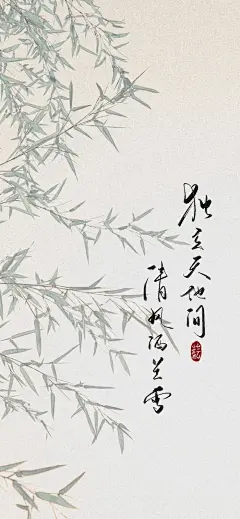 独立天地间
清风洒兰雪